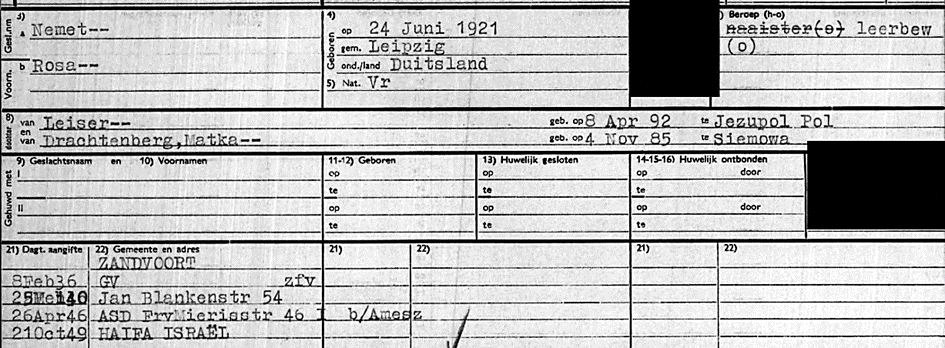 3) Gesl.nm a Nemet--
4) Geboren op 24 Juni 1921
gem. Leipzig
ond./land Duitsland
5) Nat. Vr
Beroep (h-o)
naaister(o) leerbew
(o)
Voorn. b Rosa--
8) dochter van Leiser-- geb. op 8 Apr 92 te Jezupol Pol
en van Drachtenberg,Matka-- geb. op 4 Nov 85 te Siemowa
Gehuwd met 9) Geslachtsnaam en 10) Voornamen 11-12) Geboren 13) Huwelijk gesloten 14-15-16) Huwelijk ontbonden
I op op op door
te te te
II op op op door
te te te
21) Dagt. aangifte 22) Gemeente en adres 21) 22) 21) 22)
ZANDVOORT
8Feb36 GV zfv
Jan Blankenstr 54
26Apr46 ASD FrvMierisstr 46 I b/Amesz
21Oct49 HAIFA ISRAËL